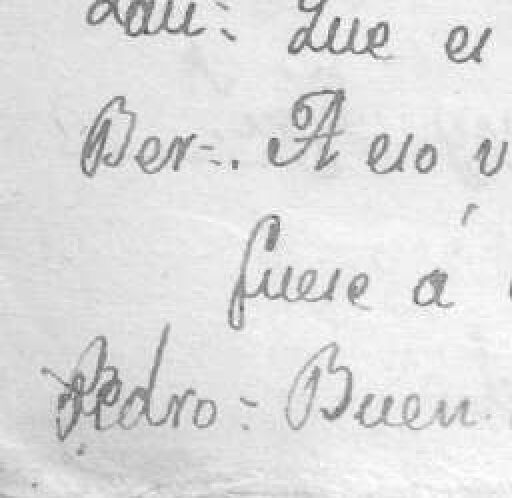 Lau: Que es
Ber-. A eso v
fuese á
Pedro: Buen